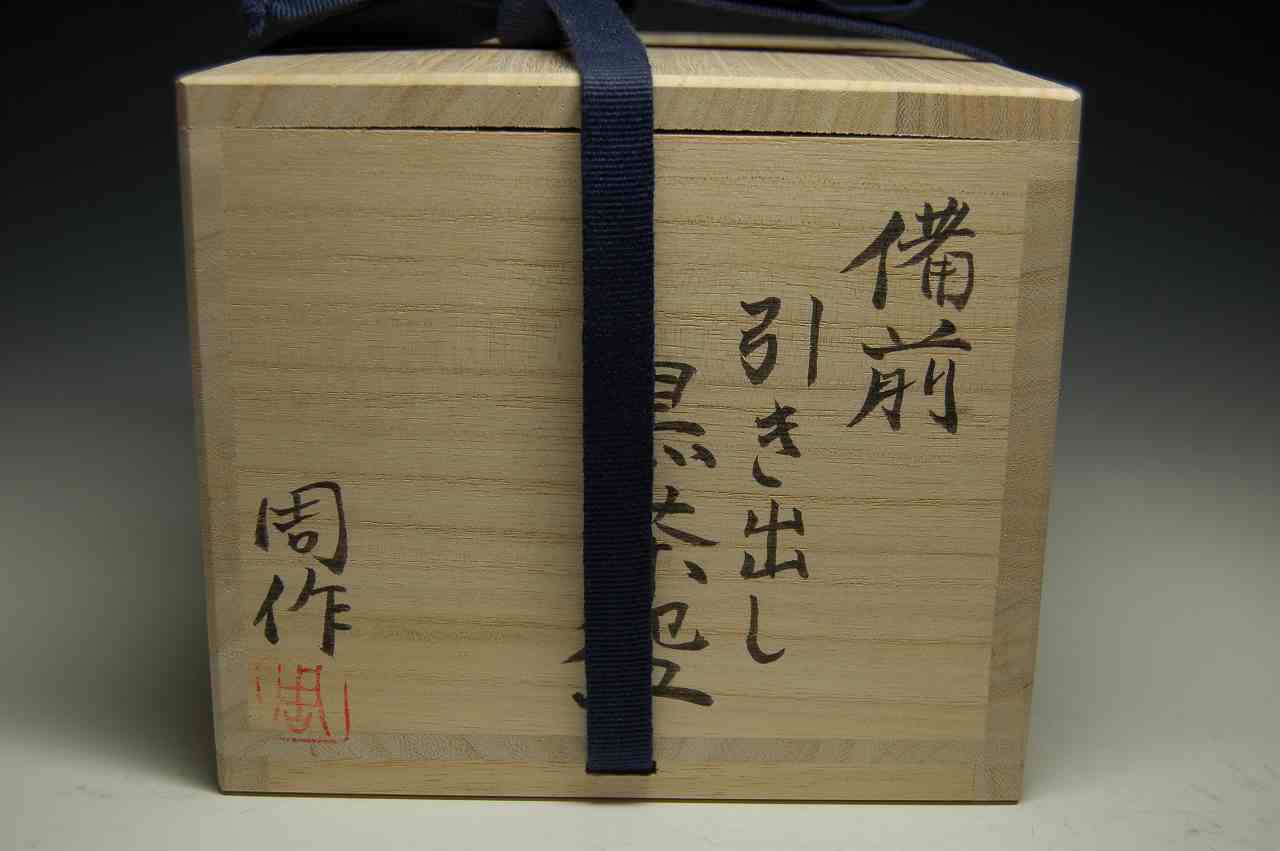 備前
引き出し
黒茶盌
周作